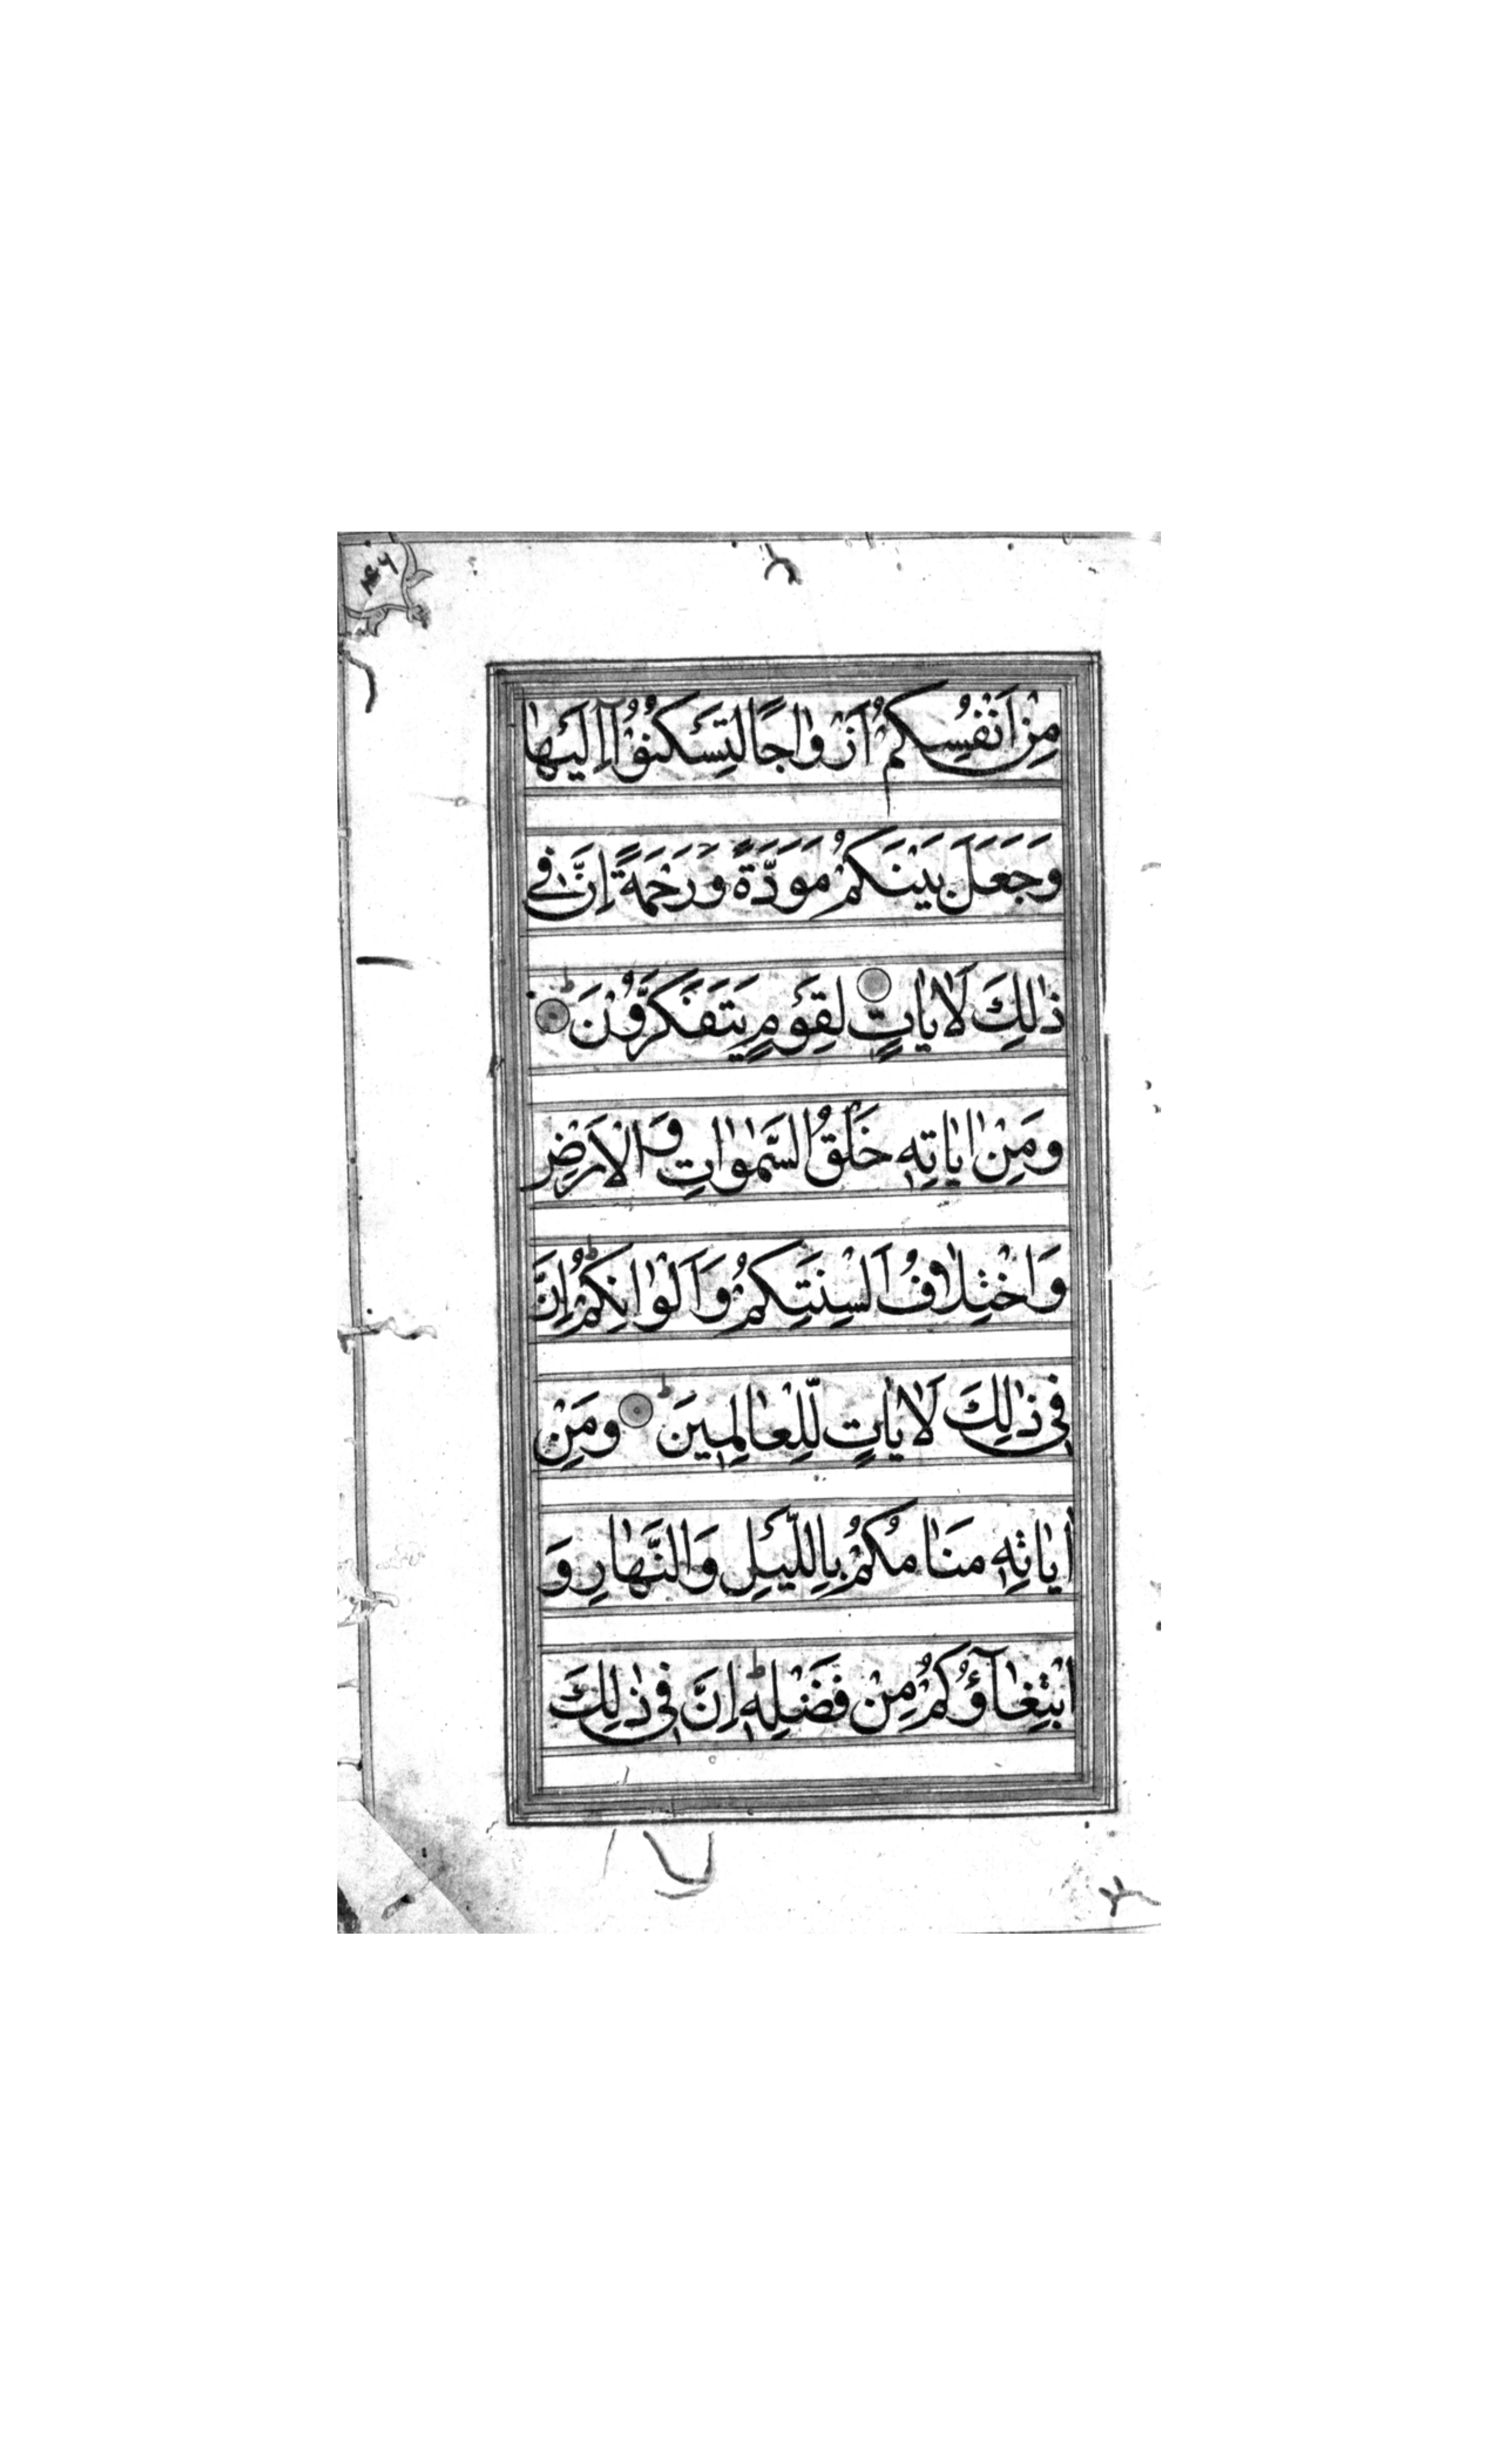 مِنْ اَنْفُسِكُمْ اَزْوٰاجًا لِتَسْكُنُوْآ اِلَيْهٰا
وَجَعَلَ بَيْنَكُمْ مَوَدَّةً وَرَحْمَةً اِنَّ فِى
ذٰلِكَ لَاٰيٰاتٍ لِقَوْمٍ يَتَفَكَّرُوْنَ
وَمِنْ اٰيٰاتِهٖ خَلْقُ السَّمٰوٰاتِ وَالْاَرْضِ
وَاخْتِلٰافُ اَلْسِنَتِكُمْ وَاَلْوٰانِكُمْ ط اِنَّ
فِى ذٰلِكَ لَاٰيٰاتٍ لِّلْعٰالِمِينَ ط وَمِنْ
اٰيٰاتِهٖ مَنٰامُكُمْ بِاللَّيْلِ وَالنَّهٰارِ وَ
ابْتِغٰآؤُكُمْ مِنْ فَضْلِهٖ ط اِنَّ فِى ذٰلِكَ